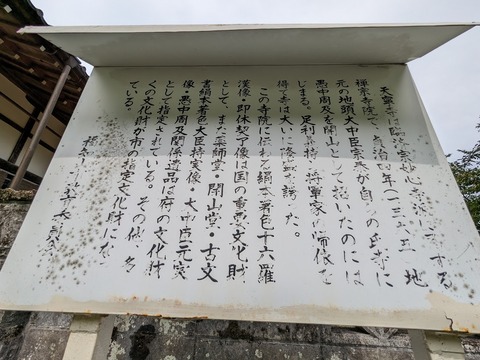 天寧寺は臨済宗妙心寺派に属する
禅宗寺院で、貞治四年(一三六五)地
元の地頭大中臣宗泰が自らの氏寺に
愚中周及を開山として招いたのには
じまる。足利義持、将軍家の帰依を
得て寺は大いに隆盛を誇った。
この寺院に伝わる絹本著色十六羅
漢像・即休契了像は国の重要文化財
として、また薬師堂・開山堂・古文
書絹本著色大臣持実像・大中臣元実
像・愚中周及関係遺品は府の文化財
として指定されている。その他、多
くの文化財が市の指定文化財になっ
ている。
福知山市教育委員会